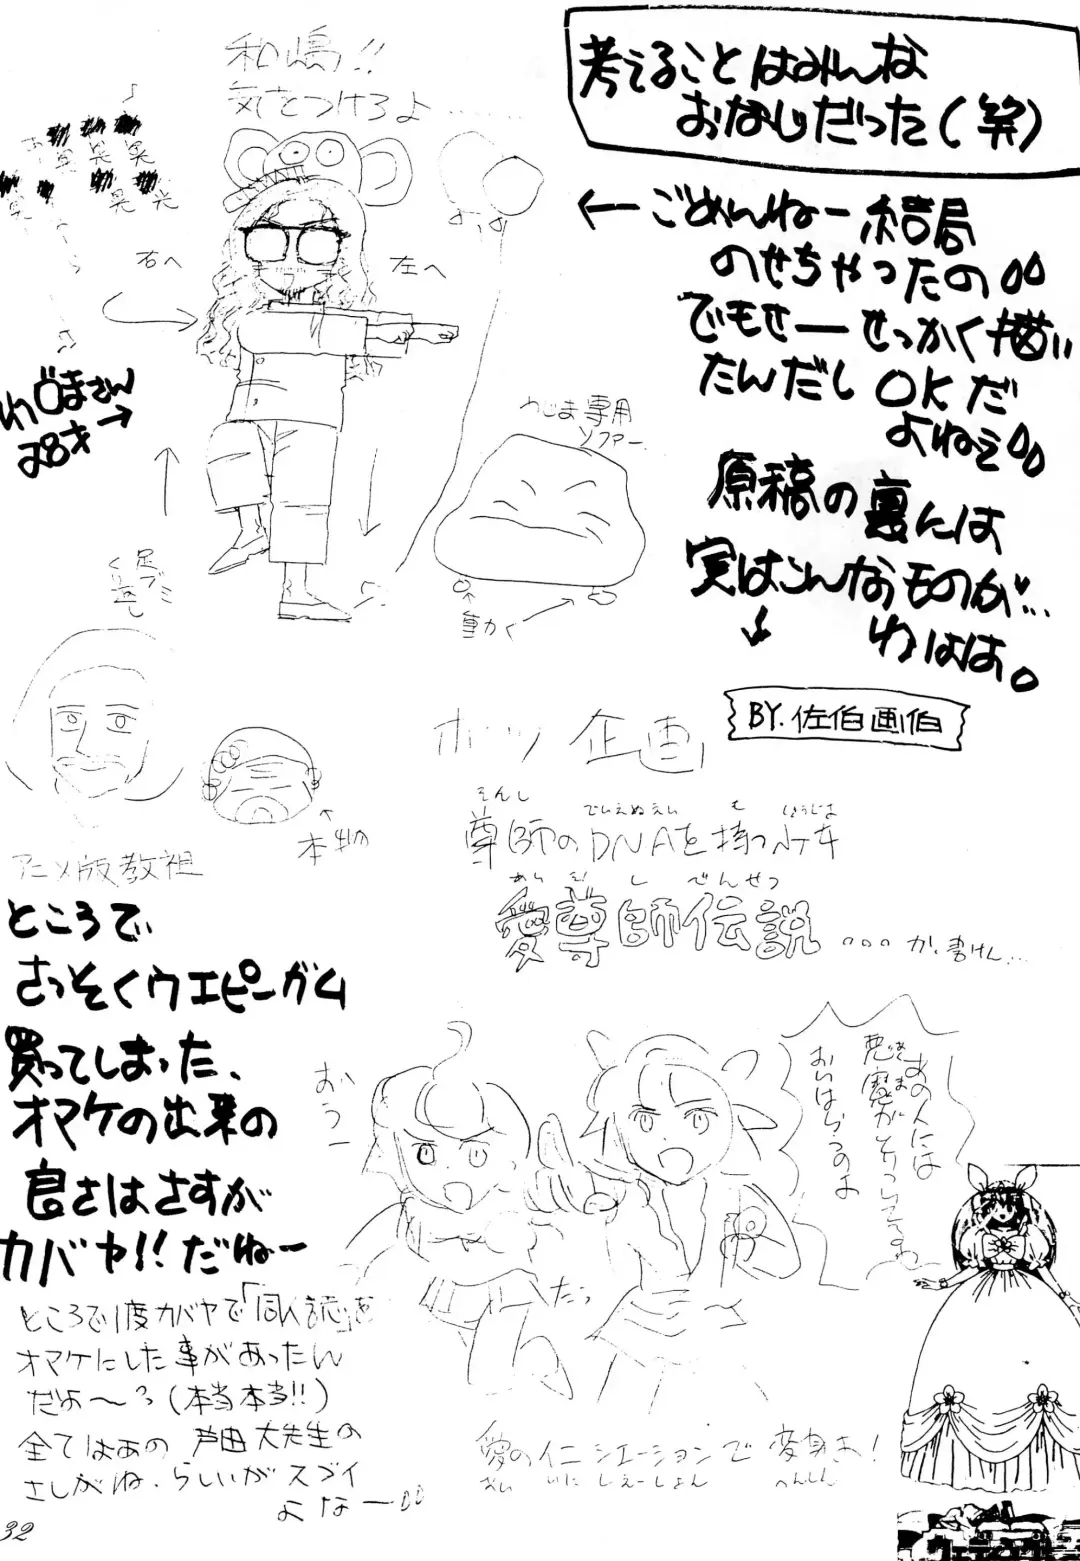 考えることはみんな
おなじだった(笑)
←ごめんねー結局
のせちゃったの
でもせーせっかく描い
たんだし OKだ
よねえ
原稿の裏んは
実はこんなものが…
↓ わはは。
BY.佐伯画伯
和嶋!!
気をつけろよ……
右へ
左へ
わじまさん
28才→
わじま専用
ソファー
動かく
足ブミ
↑
本物
アニメ版教祖
ボツ企画
そんし でぃえぬえい も しょうじょ
尊師のDNAを持つ少女
あい そん し でんせつ
愛尊師伝説 。。。か、書けん…
ところで
さっそくウエピーガム
買ってしまった、
オマケの出来の
良さはさすが
カバヤ!! だねー
ところで1度カバヤで「同人誌」を
オマケにした事があったん
だよ〜っ(本当本当!!)
全てはあの 芦田大先生の
さしがね、らしいがスゴイ
よなー
おうー
あの人には
悪魔がとりついてるわ
おいはらうのよ
だっ
愛のイニシエーションで変身よ!
あい いに しえーしょん へんしん
32
ウェディング